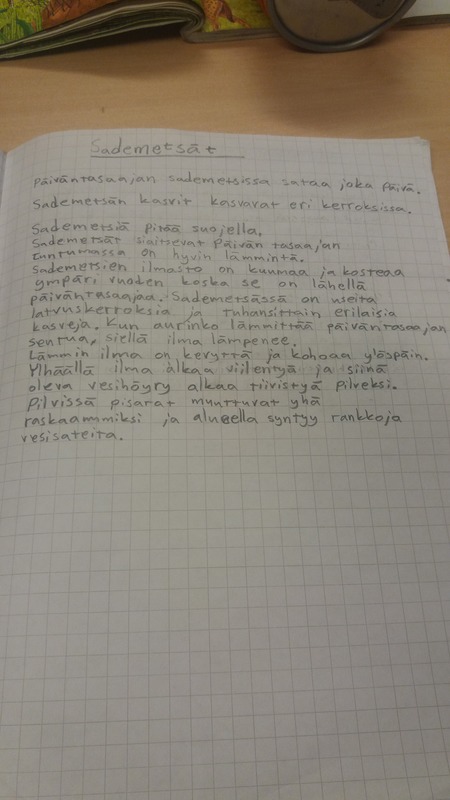 Sademetsät
Päiväntasaajan sademetsissa sataa joka päivä.
Sademetsän kasvit kasvavat eri kerroksissa.
Sademetsiä pitää suojella.
Sademetsät siaitsevat Päivän tasaajan
tuntumassa on hyvin lämmintä.
Sademetsien ilmasto on kuumaa ja kosteaa
ympäri vuoden koska se on lähellä
päiväntasaajaa. Sademetsässä on useita
latvuskerroksia ja tuhansittain erilaisia
kasveja. Kun aurinko lämmittää päiväntasaajan
seutua, siellä ilma lämpenee.
Lämmin ilma on kevyttä ja kohoaa ylöspäin.
Ylhäällä ilma alkaa viilentyä ja siinä
oleva vesihöyry alkaa tiivistyä pilveksi.
Pilvissä pisarat muuttuvat yhä
raskaammiksi ja alueella syntyy rankkoja
vesisateita.